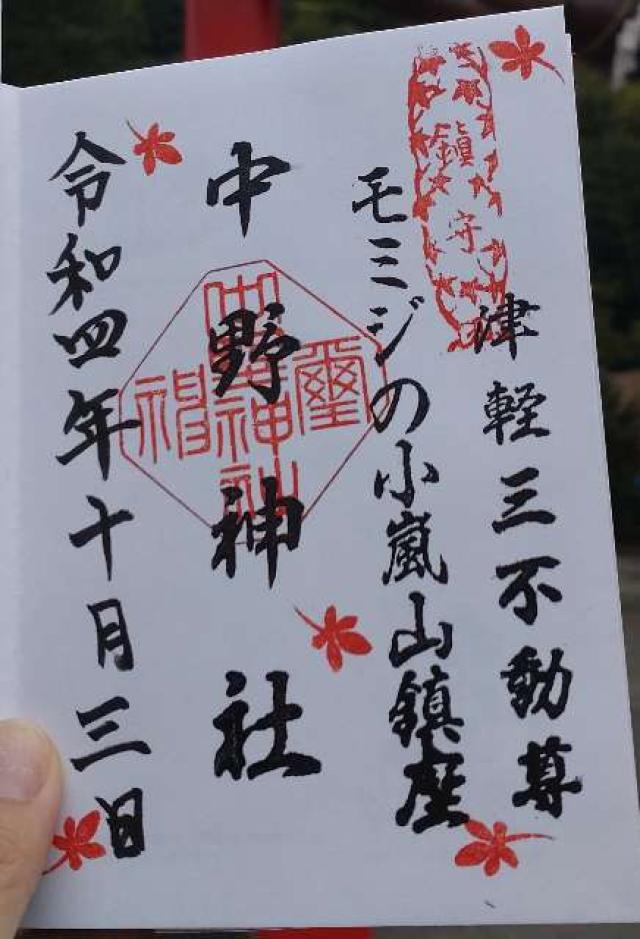 鎮守
津軽三不動尊
モミジの小嵐山鎮座
中野神社
令和四年十月三日